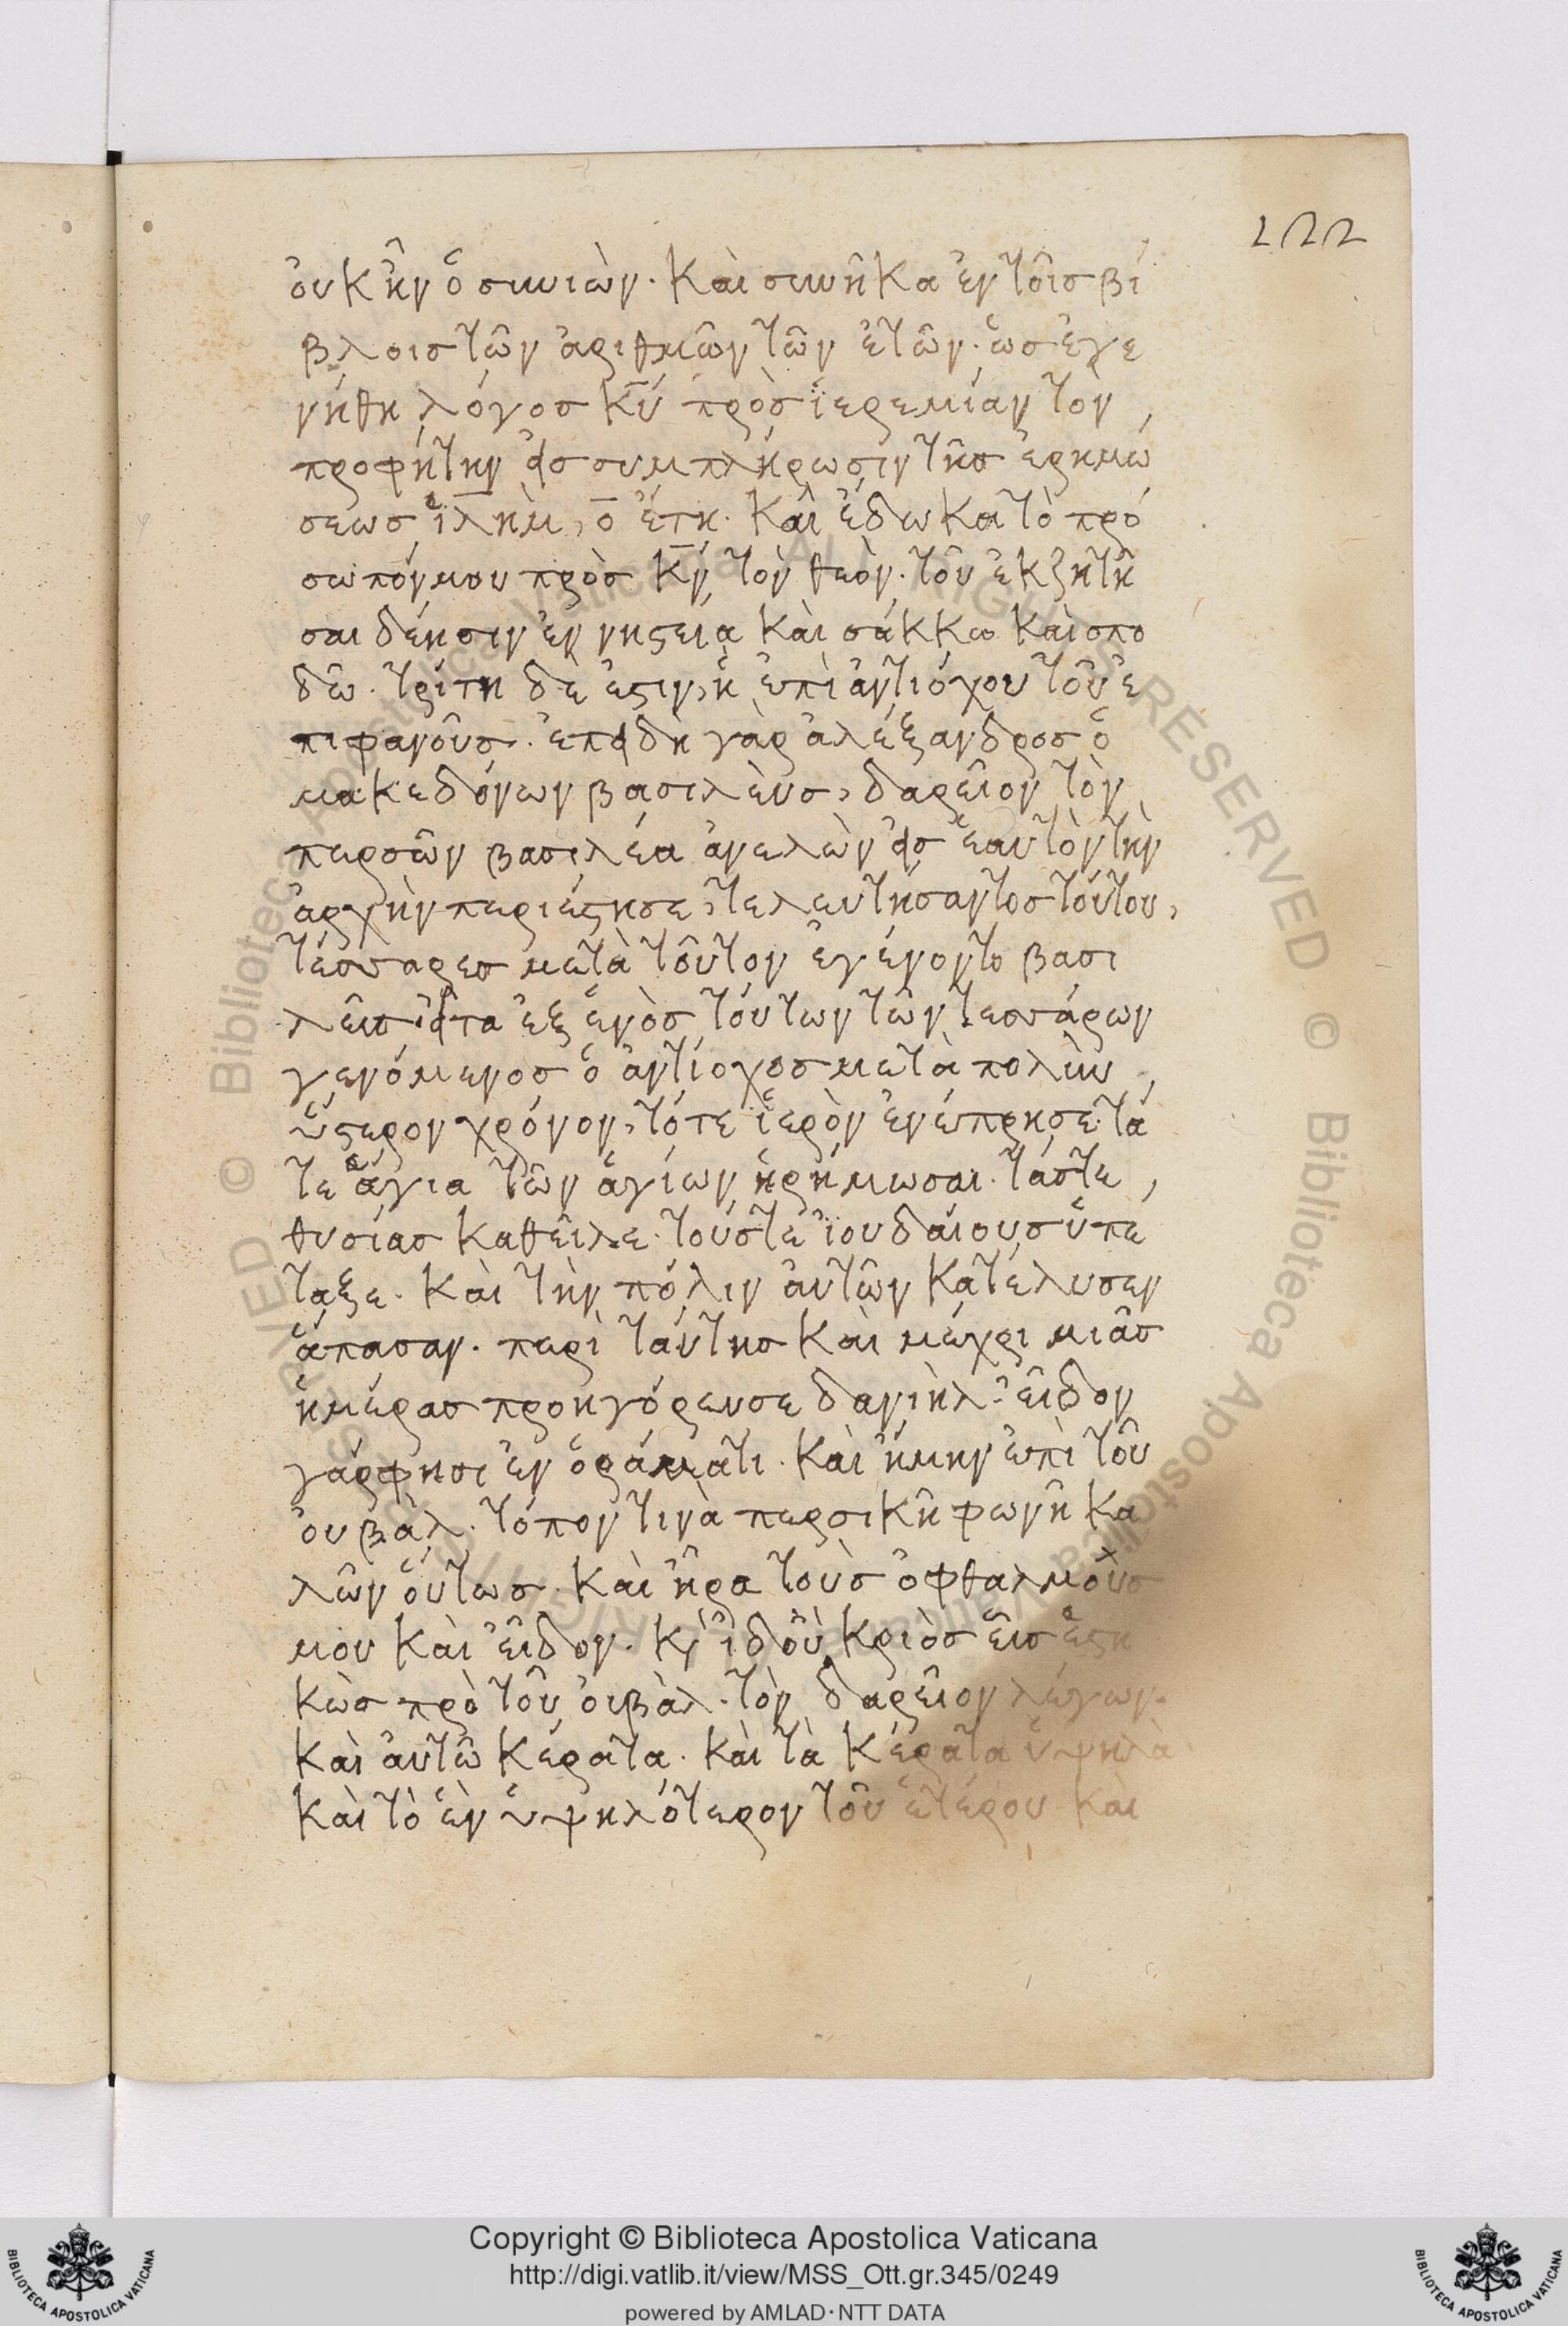 222
οὐκ ἦν ὁ συνιὼν· καὶ συνῆκα ἐν τοῖς βί
βλοις τῶν ἀριθμῶν τῶν ἐτῶν· ὡς ἐγε
νήθη λόγος κ̅υ̅ πρὸς ἱερεμίαν τὸν,
προφήτην εἰς συμπλήρωσιν τῆς ἐρημώ
σεως ἱ̅λ̅ημ, ο̅ ἔτη· καὶ ἔδωκα τὸ πρό
σωπόν μου πρὸς κ̅ν̅ τὸν θεὸν· τοῦ ἐκζητῆ
σαι δέησιν ἐν νηστεία καὶ σάκκω καὶ σπο
δῶ· τρίτη δὲ ἐστιν, ἡ ἐπὶ ἀντιόχου τοῦ ἐ
πιφανοῦς· ἐπειδὴ γὰρ ἀλέξανδρος ὁ
μακεδόνων βασιλεὺς, δαρεῖον τὸν
περσῶν βασιλέα ἀνελὼν εἰς ἑαυτὸν τὴν
ἀρχὴν περιέστησε, τελευτήσαντος τούτου,
τέσσαρες μετὰ τοῦτον ἐγένοντο βασι
λεῖς· εἶτα ἐξ ἑνὸς τούτων τῶν τεσσάρων
γενόμενος ὁ ἀντίοχος μετὰ πολὺν,
ὕστερον χρόνον, τότε ἱερὸν ἐνέπρησε· τά
τε ἅγια τῶν ἁγίων ἠρήμωσαι· τάς τε,
θυσίας καθεῖλε· τούς τε ἰουδαίους ὑπέ
ταξε· καὶ τὴν πόλιν αὐτῶν κατέλυσεν
ἅπασαν· περὶ ταύτης καὶ μέχρι μιᾶς
ἡμέρας προηγόρευσε δανιὴλ· εἶδον
γάρ φησι ἐν ὁράματι· καὶ ἤμην ἐπὶ τοῦ
οὐβὰλ· τόπον τινὰ περσικῆ φωνῆ κα
λῶν οὕτως· καὶ ἦρα τοὺς ὀφθαλμοὺς
μου καὶ εἶδον· κ̀ ἰδοὺ κριὸς εἷς ἑστη
κὼς πρὸ τοῦ οὐβὰλ· τὸν δαρεῖον λέγων·
καὶ αὐτῶ κέρατα· καὶ τὰ κέρατα ὑψηλὰ
καὶ τὸ ἓν ὑψηλότερον τοῦ ἑτέρου καὶ
Copyright © Biblioteca Apostolica Vaticana
http://digi.vatlib.it/view/MSS_Ott.gr.345/0249
powered by AMLAD·NTT DATA